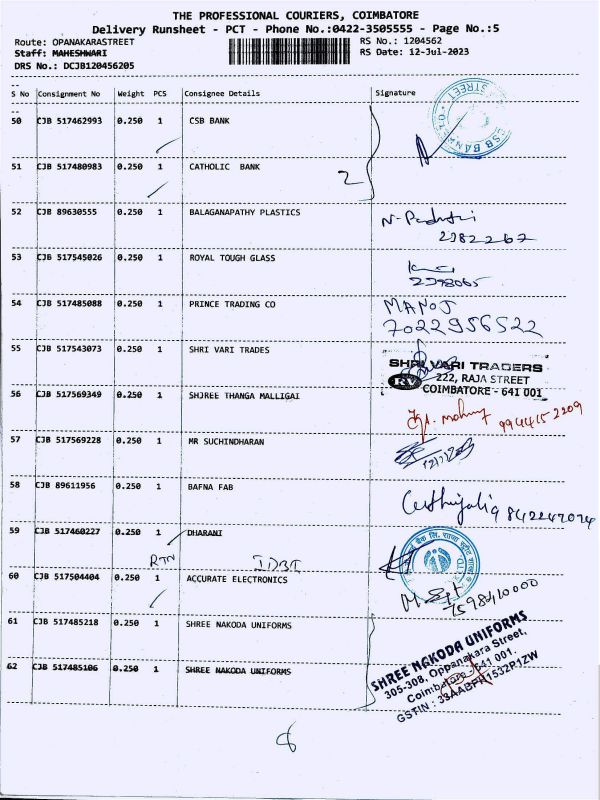 THE PROFESSIONAL COURIERS, COIMBATORE
Delivery Runsheet - PCT - Phone No.:0422-3505555 - Page No.:5
Route: OPANAKARASTREET RS No.: 1204562
Staff: MAHESHWARI RS Date: 12-Jul-2023
DRS No.: DCJB120456205
S No Consignment No Weight PCS Consignee Details Signature
50 CJB 517462993 0.250 1 CSB BANK
STREET CSB BANK
51 CJB 517480983 0.250 1 CATHOLIC BANK 2
52 CJB 89630555 0.250 1 BALAGANAPATHY PLASTICS
2382267
53 CJB 517545026 0.250 1 ROYAL TOUGH GLASS
2398065
54 CJB 517485088 0.250 1 PRINCE TRADING CO MANOJ
7022956522
55 CJB 517543073 0.250 1 SHRI VARI TRADES
SHRI VARI TRADERS
RV 222, RAJA STREET
COIMBATORE - 641 001
56 CJB 517569349 0.250 1 SHJREE THANGA MALLIGAI
9944152209
57 CJB 517569228 0.250 1 MR SUCHINDHARAN
58 CJB 89611956 0.250 1 BAFNA FAB
9842247074
59 CJB 517460227 0.250 1 DHARANI
RTN IDBI
60 CJB 517504404 0.250 1 ACCURATE ELECTRONICS
61 CJB 517485218 0.250 1 SHREE NAKODA UNIFORMS
62 CJB 517485106 0.250 1 SHREE NAKODA UNIFORMS
SHREE NAKODA UNIFORMS
305-308, Oppanakara Street,
Coimbatore - 641 001.
GSTIN : 33AABPH1532P1ZW